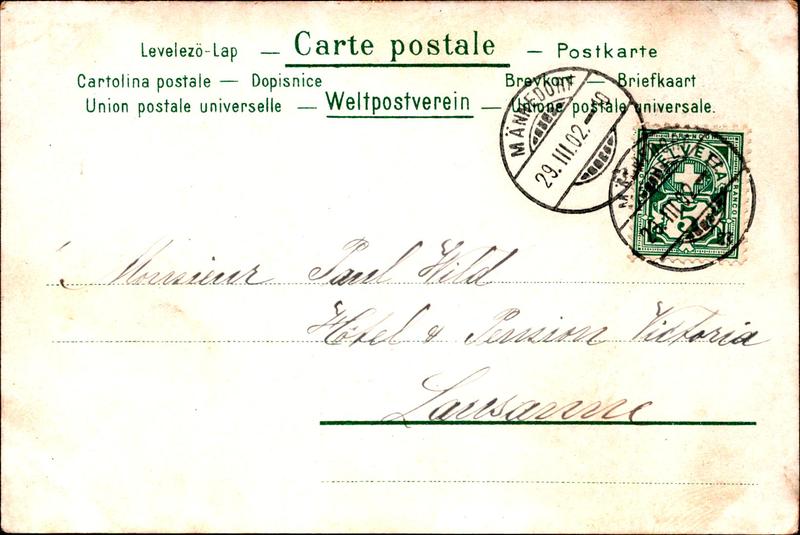 Levelezö-Lap — Carte postale — Postkarte
Cartolina postale — Dopisnice Brevkort — Briefkaart
Union postale universelle — Weltpostverein — Unione postale universale.
MÄNNEDORF
29.III.02.–10
FRANCO
HELVETIA
FRANCO
5
Monsieur Paul Wild
Hôtel & Pension Victoria
Lausanne